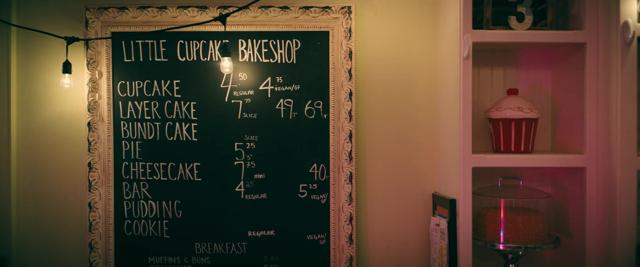 3
LITTLE CUPCAKE BAKESHOP
CUPCAKE 4.50 REGULAR 4.75 VEGAN/GF
LAYER CAKE 7.75 SLICE 49 69
BUNDT CAKE SLICE
PIE 5.25
CHEESECAKE 7.75 mini 40
BAR 4 REGULAR 5.25 VEGAN
PUDDING
COOKIE REGULAR VEGAN
BREAKFAST
MUFFINS & BUNS